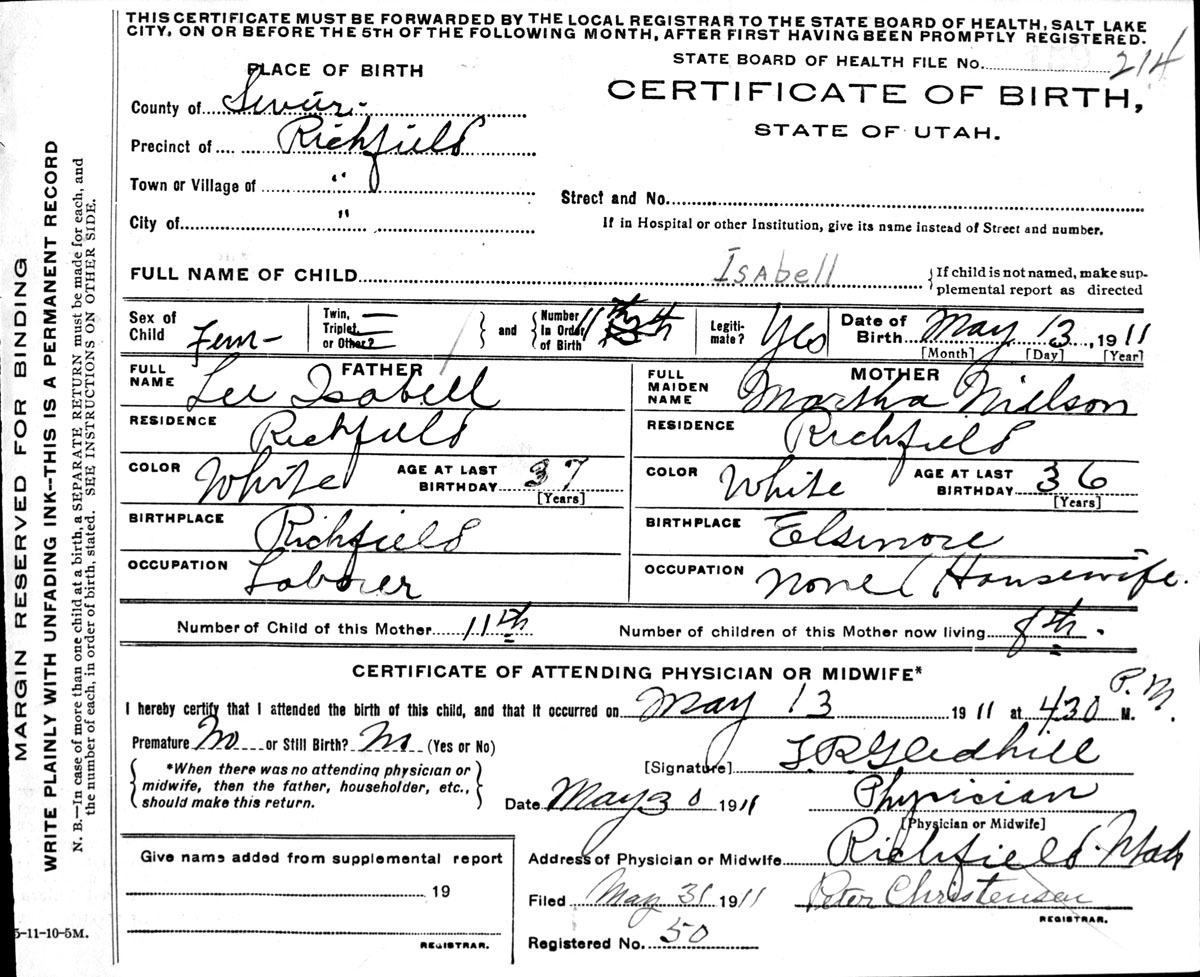 THIS CERTIFICATE MUST BE FORWARDED BY THE LOCAL REGISTRAR TO THE STATE BOARD OF HEALTH, SALT LAKE
CITY, ON OR BEFORE THE 5TH OF THE FOLLOWING MONTH, AFTER FIRST HAVING BEEN PROMPTLY REGISTERED.
PLACE OF BIRTH
STATE BOARD OF HEALTH FILE No. 214
County of Sevier
CERTIFICATE OF BIRTH,
STATE OF UTAH.
Precinct of Richfield
Town or Village of "
Street and No.
City of "
If in Hospital or other Institution, give its name instead of Street and number.
FULL NAME OF CHILD Isabell
{If child is not named, make sup-
plemental report as directed
Sex of Child Fem-
Twin, Triplet, or Other?
and
Number In Order of Birth 11th
Legiti-mate? Yes
Date of Birth May 13, 1911
[Month] [Day] [Year]
FATHER
FULL NAME Lee Isabell
MOTHER
FULL MAIDEN NAME Martha Nielson
RESIDENCE Richfield
RESIDENCE Richfield
COLOR White
AGE AT LAST BIRTHDAY 37
[Years]
COLOR White
AGE AT LAST BIRTHDAY 36
[Years]
BIRTHPLACE Richfield
BIRTHPLACE Elsinore
OCCUPATION Laborer
OCCUPATION None (Housewife.
Number of Child of this Mother 11th
Number of children of this Mother now living 8th.
CERTIFICATE OF ATTENDING PHYSICIAN OR MIDWIFE*
I hereby certify that I attended the birth of this child, and that it occurred on May 13 1911 at 430 P.M. M.
Premature No or Still Birth? No (Yes or No)
*When there was no attending physician or
midwife, then the father, householder, etc.,
should make this return.
[Signature] Gledhill
Date May 30 1911
Physician
[Physician or Midwife]
Address of Physician or Midwife Richfield Utah
Give name added from supplemental report
19
REGISTRAR.
Filed May 31 1911
Peter Christensen
REGISTRAR.
Registered No. 50
MARGIN RESERVED FOR BINDING
WRITE PLAINLY WITH UNFADING INK—THIS IS A PERMANENT RECORD
N. B.—In case of more than one child at a birth, a SEPARATE RETURN must be made for each, and
the number of each, in order of birth, stated. SEE INSTRUCTIONS ON OTHER SIDE.
5-11-10-5M.